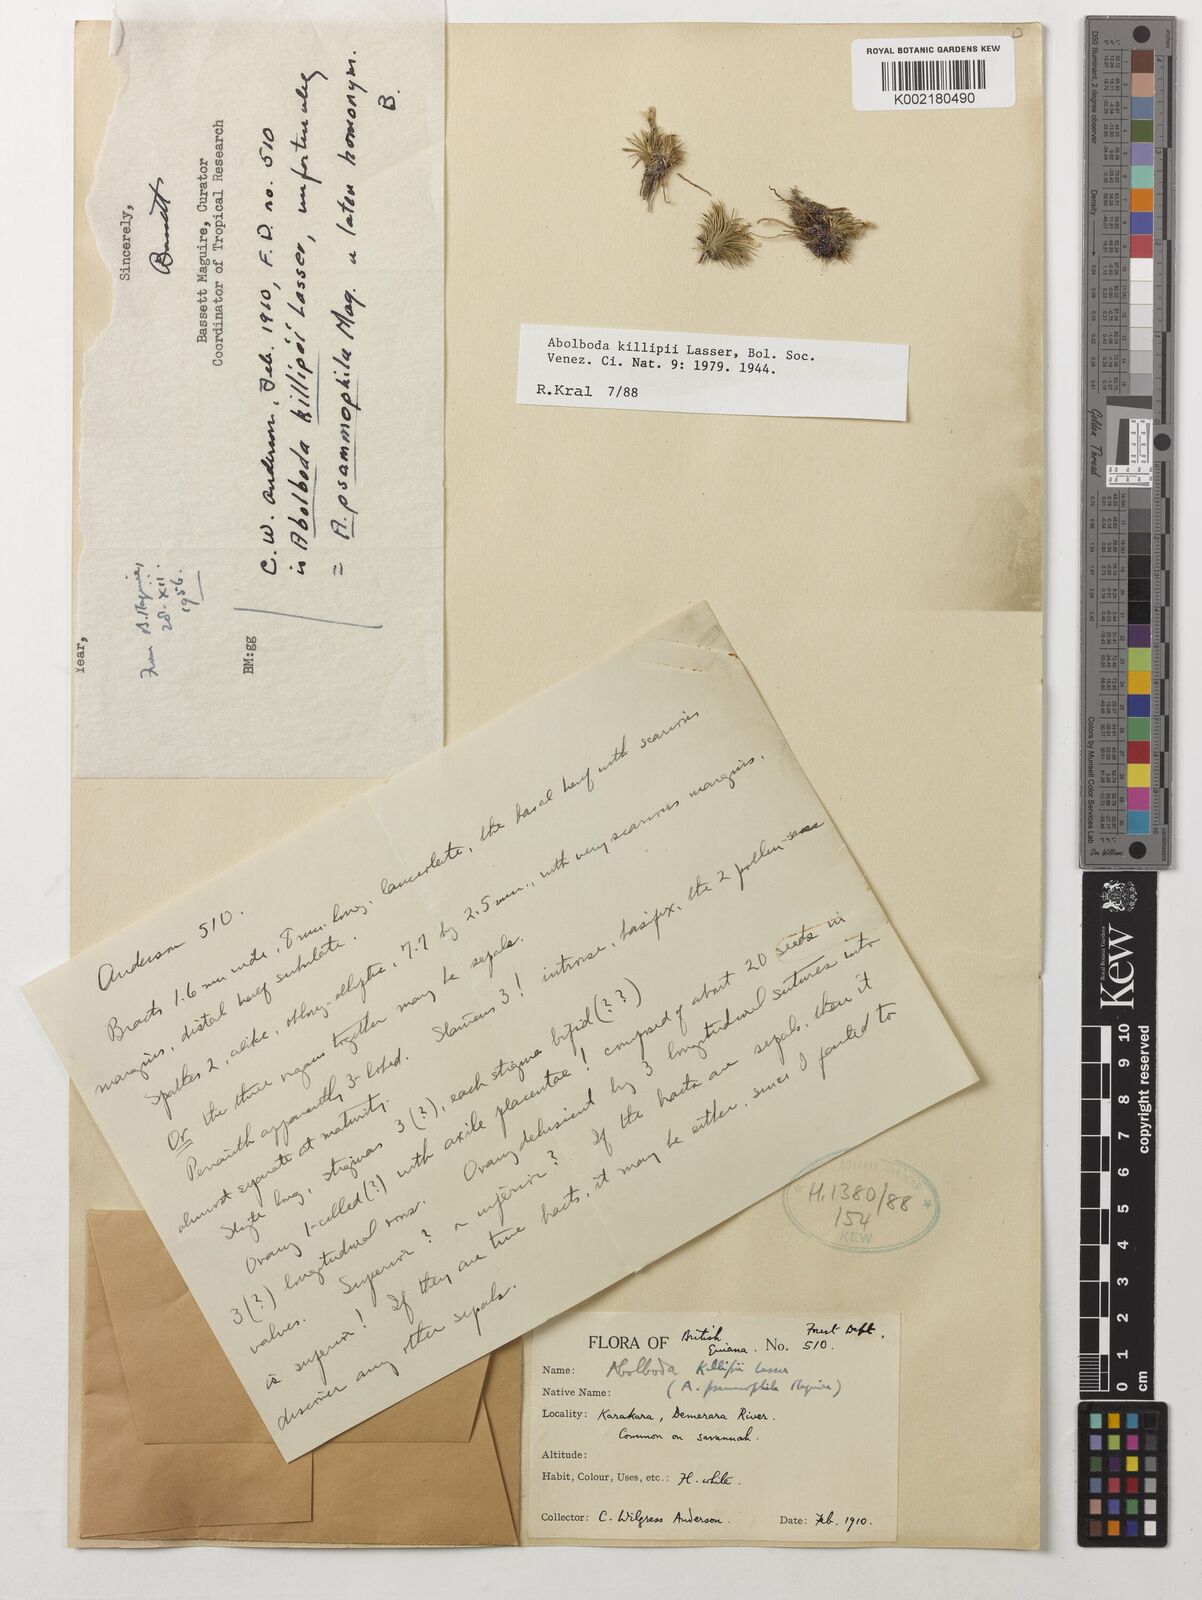 ROYAL BOTANIC GARDENS KEW
K002180490
Year,
Sincerely,
Bassett
Bassett Maguire, Curator
Coordinator of Tropical Research
From B. Maguire,
28.XII.
1956.
BM:gg
C. W. Anderson, Feb. 1910, F. D. no. 510
is Abolboda killipii Lasser, unfortunately
= A. psammophila Mag. a later homonym.
B.
Abolboda killipii Lasser, Bol. Soc.
Venez. Ci. Nat. 9: 1979. 1944.
R.Kral 7/88
Anderson 510.
Bracts 1.6 mm wide, 8 mm. long, lanceolate, the basal half with scarious
margins, distal half subulate.
Spathes 2, alike, oblong-elliptic, 7.7 by 2.5 mm., with very scarious margins.
Or the three organs together may be sepals.
Perianth apparently 3-lobed. Stamens 3! introrse, basifix, the 2 pollen-sacs
almost separate at maturity.
Style long, stigmas 3 (?), each stigma bifid (??)
Ovary 1-celled (?) with axile placentae! composed of about 20 seeds in
3(?) longitudinal rows. Ovary dehiscent by 3 longitudinal sutures into
valves. Superior? or inferior? If the bracts are sepals, then it
is superior! If they are true bracts, it may be either, since I failed to
discover any other sepals.
BOTANIC GARDENS
H.1380/88
154
KEW
FLORA OF British Guiana. No. Forest Dept. 510.
Name: Abolboda Killipii Lasser
(A. psammophila Maguire)
Native Name:
Locality: Karakara, Demerara River.
Common on savannah.
Altitude:
Habit, Colour, Uses, etc.: Fl. white.
Collector: C. Wilgress Anderson. Date: Feb. 1910.
Golden Thread
Colors by Munsell Color Services Lab
Don Williams
Density
inches
D50 Illuminant, 2 degree observer
Royal Botanic Gardens
Kew
0 1 2 3 4 5 6 7 8 9 10
cm